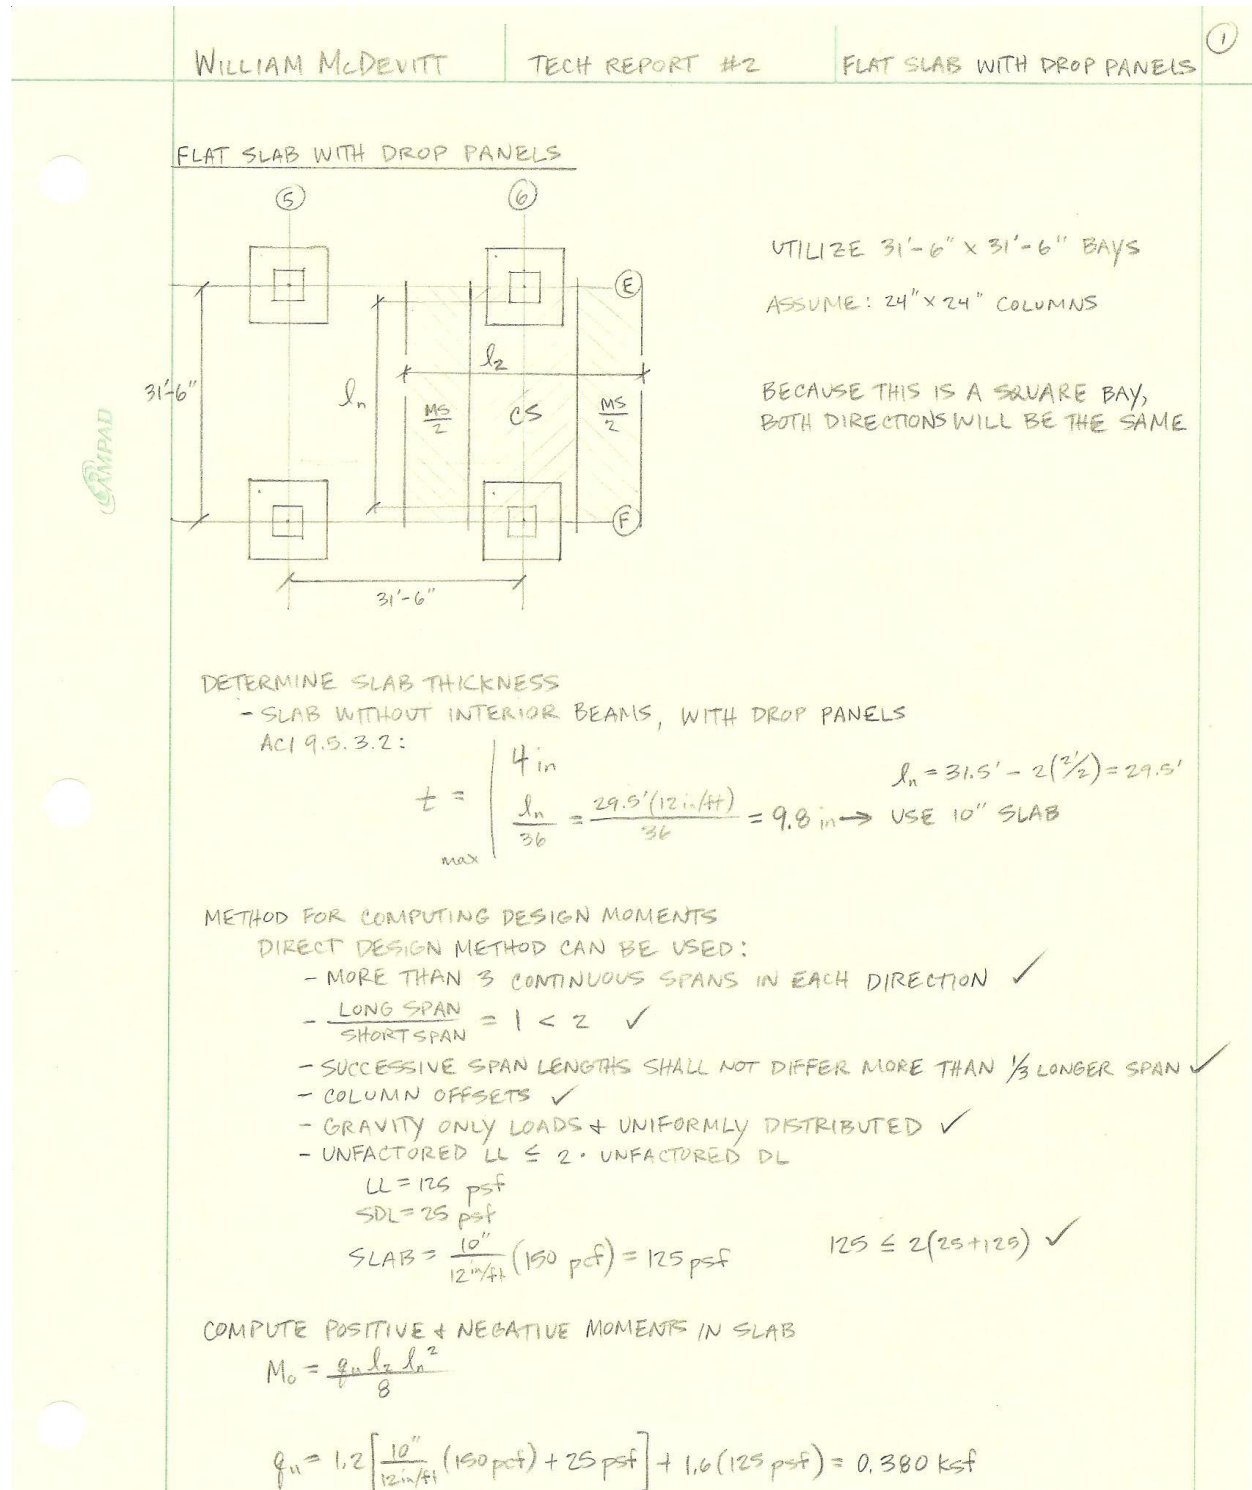 WILLIAM McDEVITT TECH REPORT #2 FLAT SLAB WITH DROP PANELS 1
FLAT SLAB WITH DROP PANELS
5 6
UTILIZE 31'-6" x 31'-6" BAYS
E
ASSUME: 24" x 24" COLUMNS
l2
31'-6" ln
BECAUSE THIS IS A SQUARE BAY,
MS/2 CS MS/2
BOTH DIRECTIONS WILL BE THE SAME
AMPAD
F
31'-6"
DETERMINE SLAB THICKNESS
- SLAB WITHOUT INTERIOR BEAMS, WITH DROP PANELS
ACI 9.5.3.2:
4 in
ln = 31.5' - 2(2'/2) = 29.5'
t = ln/36 = 29.5'(12in/ft)/36 = 9.8 in → USE 10" SLAB
max
METHOD FOR COMPUTING DESIGN MOMENTS
DIRECT DESIGN METHOD CAN BE USED:
- MORE THAN 3 CONTINUOUS SPANS IN EACH DIRECTION ✓
- LONG SPAN/SHORT SPAN = 1 < 2 ✓
- SUCCESSIVE SPAN LENGTHS SHALL NOT DIFFER MORE THAN 1/3 LONGER SPAN ✓
- COLUMN OFFSETS ✓
- GRAVITY ONLY LOADS + UNIFORMLY DISTRIBUTED ✓
- UNFACTORED LL ≤ 2 · UNFACTORED DL
LL = 125 psf
SDL = 25 psf
SLAB = 10"/12in/ft (150 pcf) = 125 psf 125 ≤ 2(25+125) ✓
COMPUTE POSITIVE + NEGATIVE MOMENTS IN SLAB
Mo = qu l2 ln²/8
qu = 1.2[10"/12in/ft (150 pcf) + 25 psf] + 1.6(125 psf) = 0.380 ksf